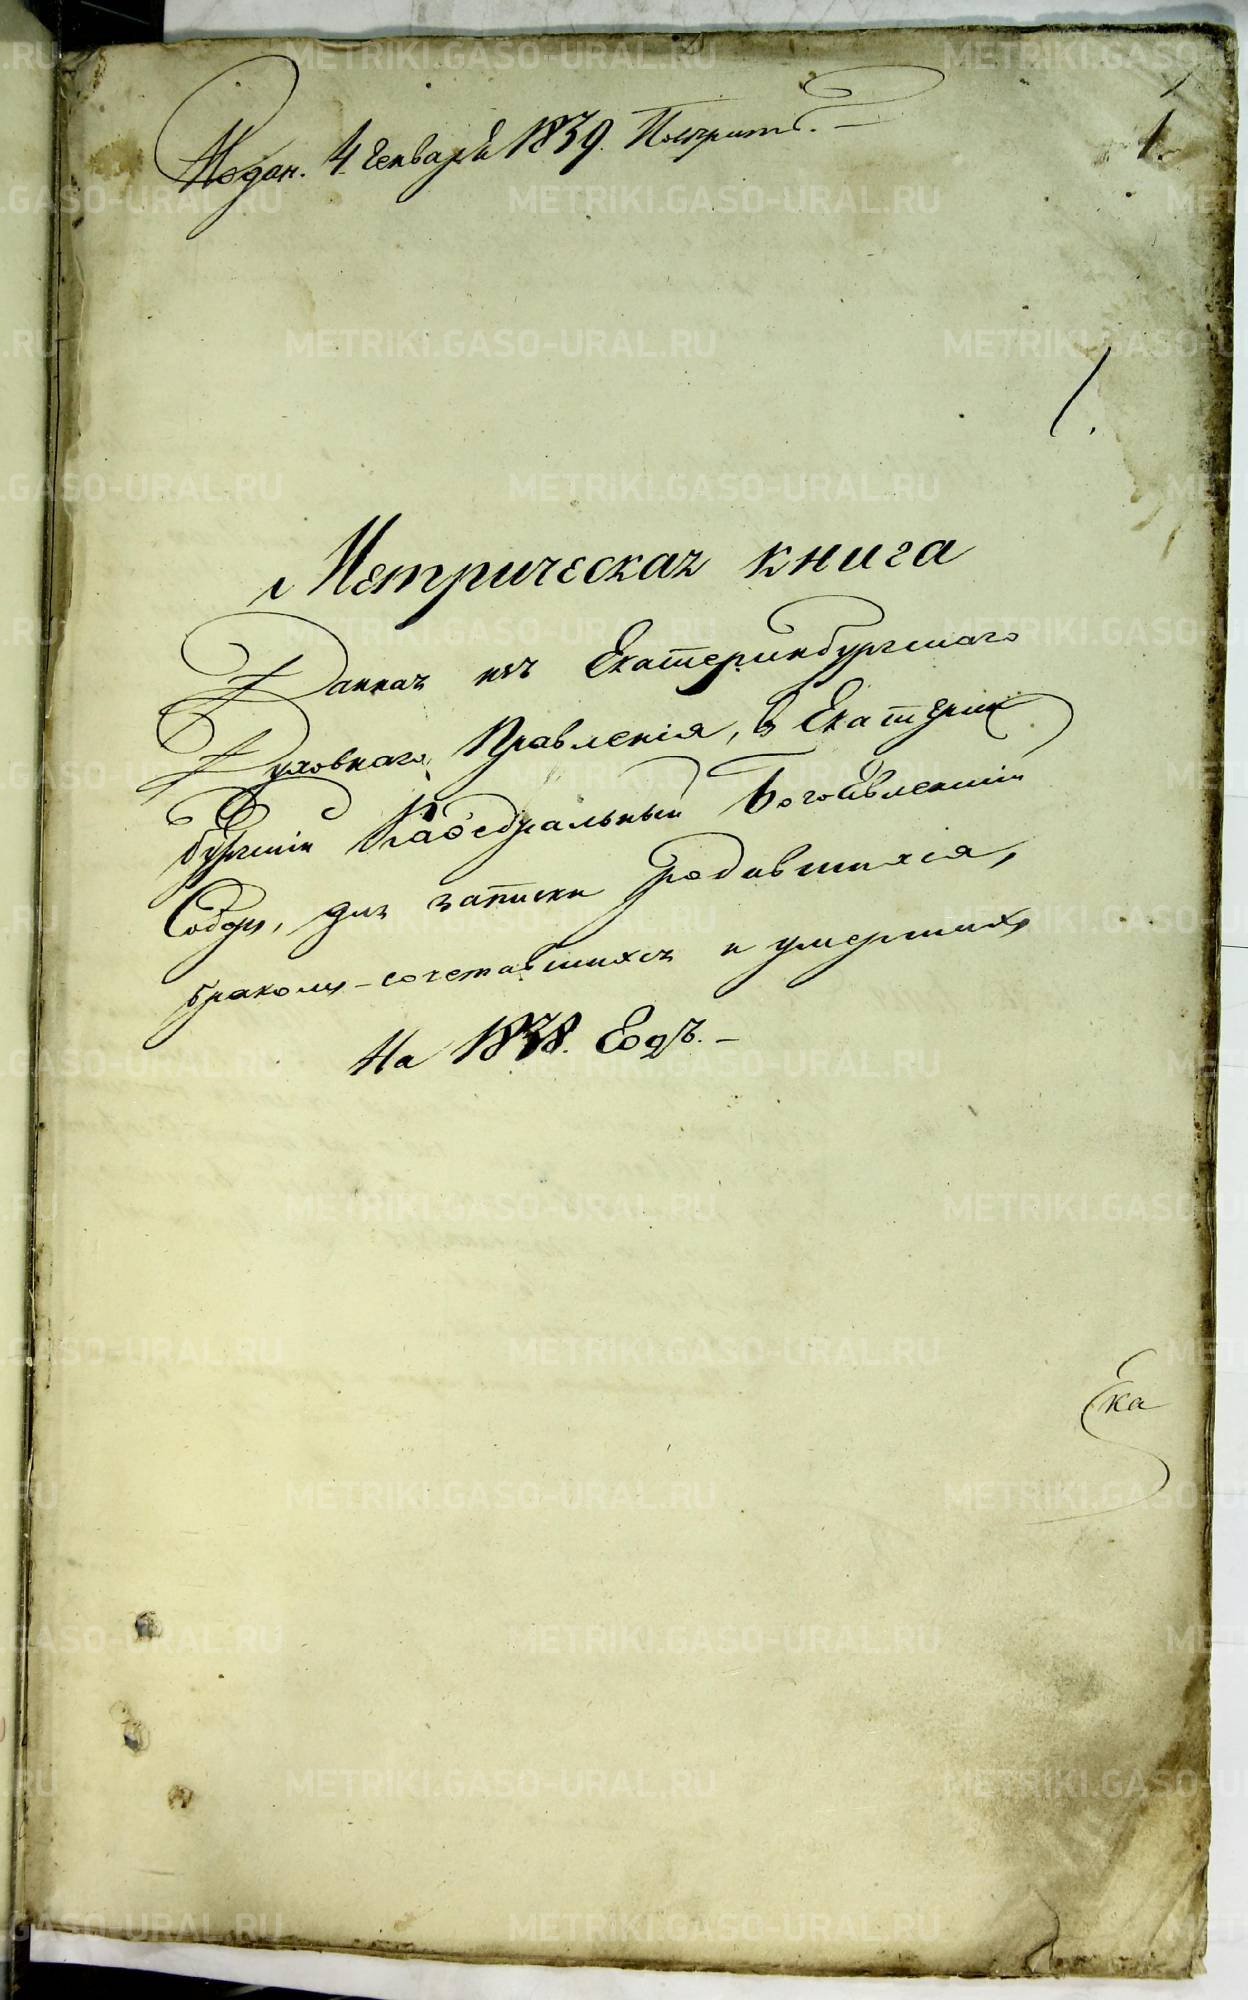 Подан. 4 Генваря 1839.
1.
1.
Метрическая книга
Данная изъ Екатеринбургскаго
Духовнаго Правленія, в Екатерин
бургскій Кафедральный Богоявленскій
Соборъ, для записки родившихся,
бракомъ-сочетавшихся и умершихъ,
На 1838. Годъ. –
Ека
METRIKI.GASO-URAL.RU